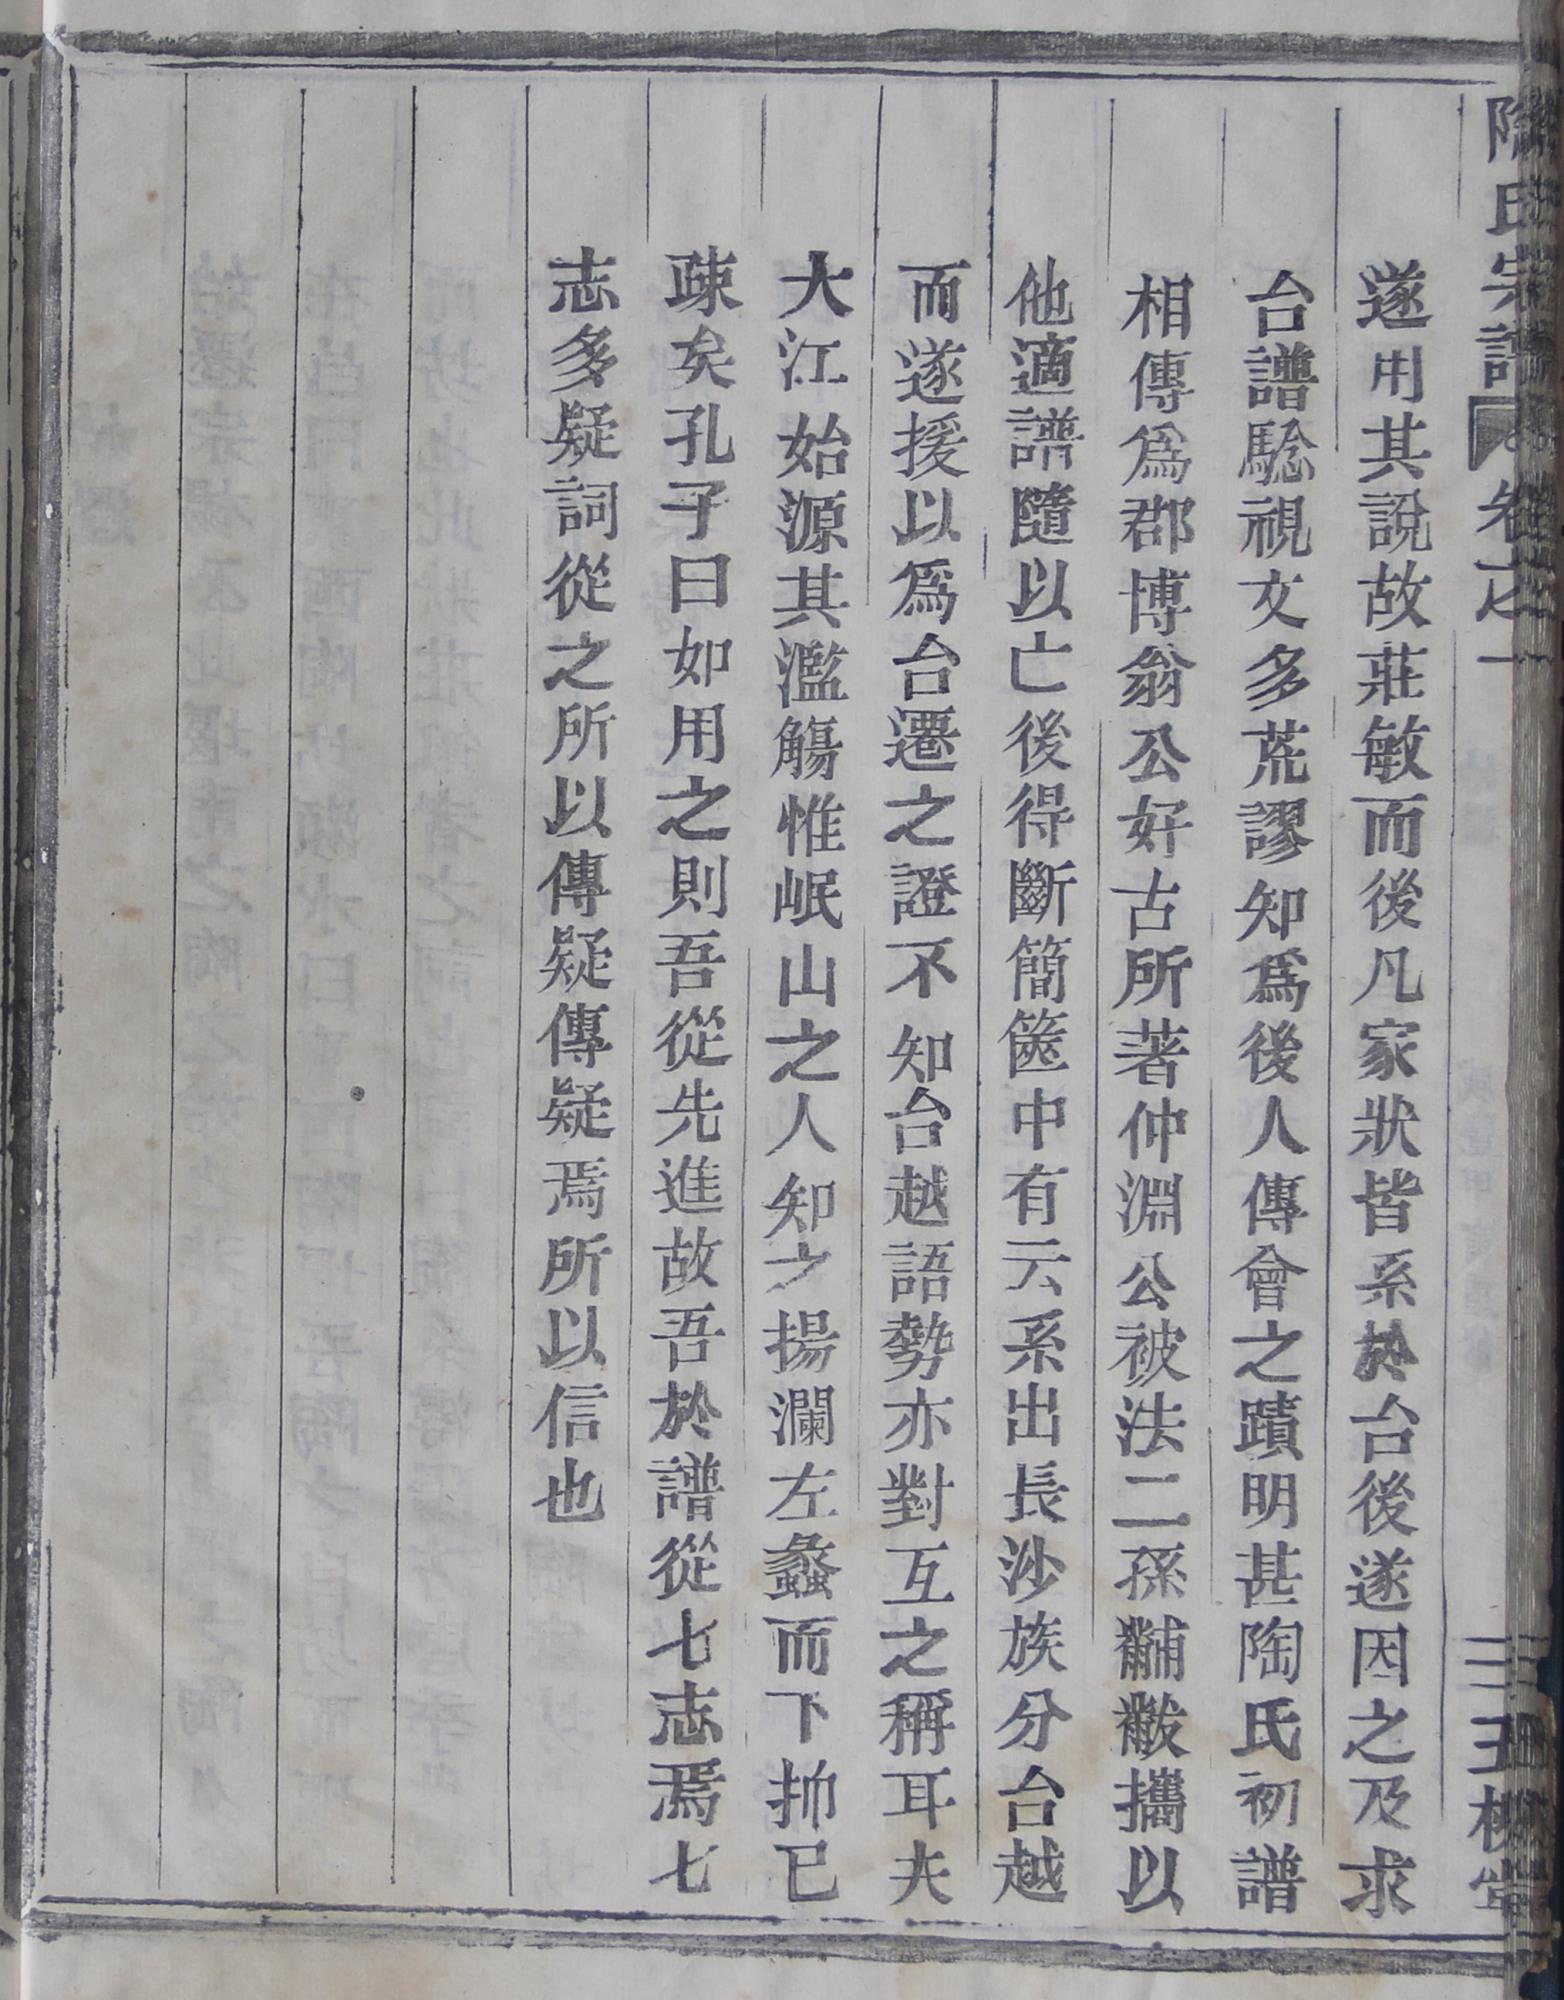 陶氏宗譜 卷之一 三 五柳堂
遂用其說故莊敏而後凡家狀皆系於台後遂因之及求
台譜騐視文多荒謬知爲後人傳會之蹟明甚陶氏初譜
相傳爲郡博翁公好古所著仲淵公被法二孫黼黻攜以
他適譜隨以亡後得斷簡篋中有云系出長沙族分台越
而遂援以爲台遷之證不知台越語勢亦對互之稱耳夫
大江始源其濫觴惟岷山之人知之揚瀾左蠡而下抑已
疎矣孔子曰如用之則吾從先進故吾於譜從七志焉七
志多疑詞從之所以傳疑傳疑焉所以信也